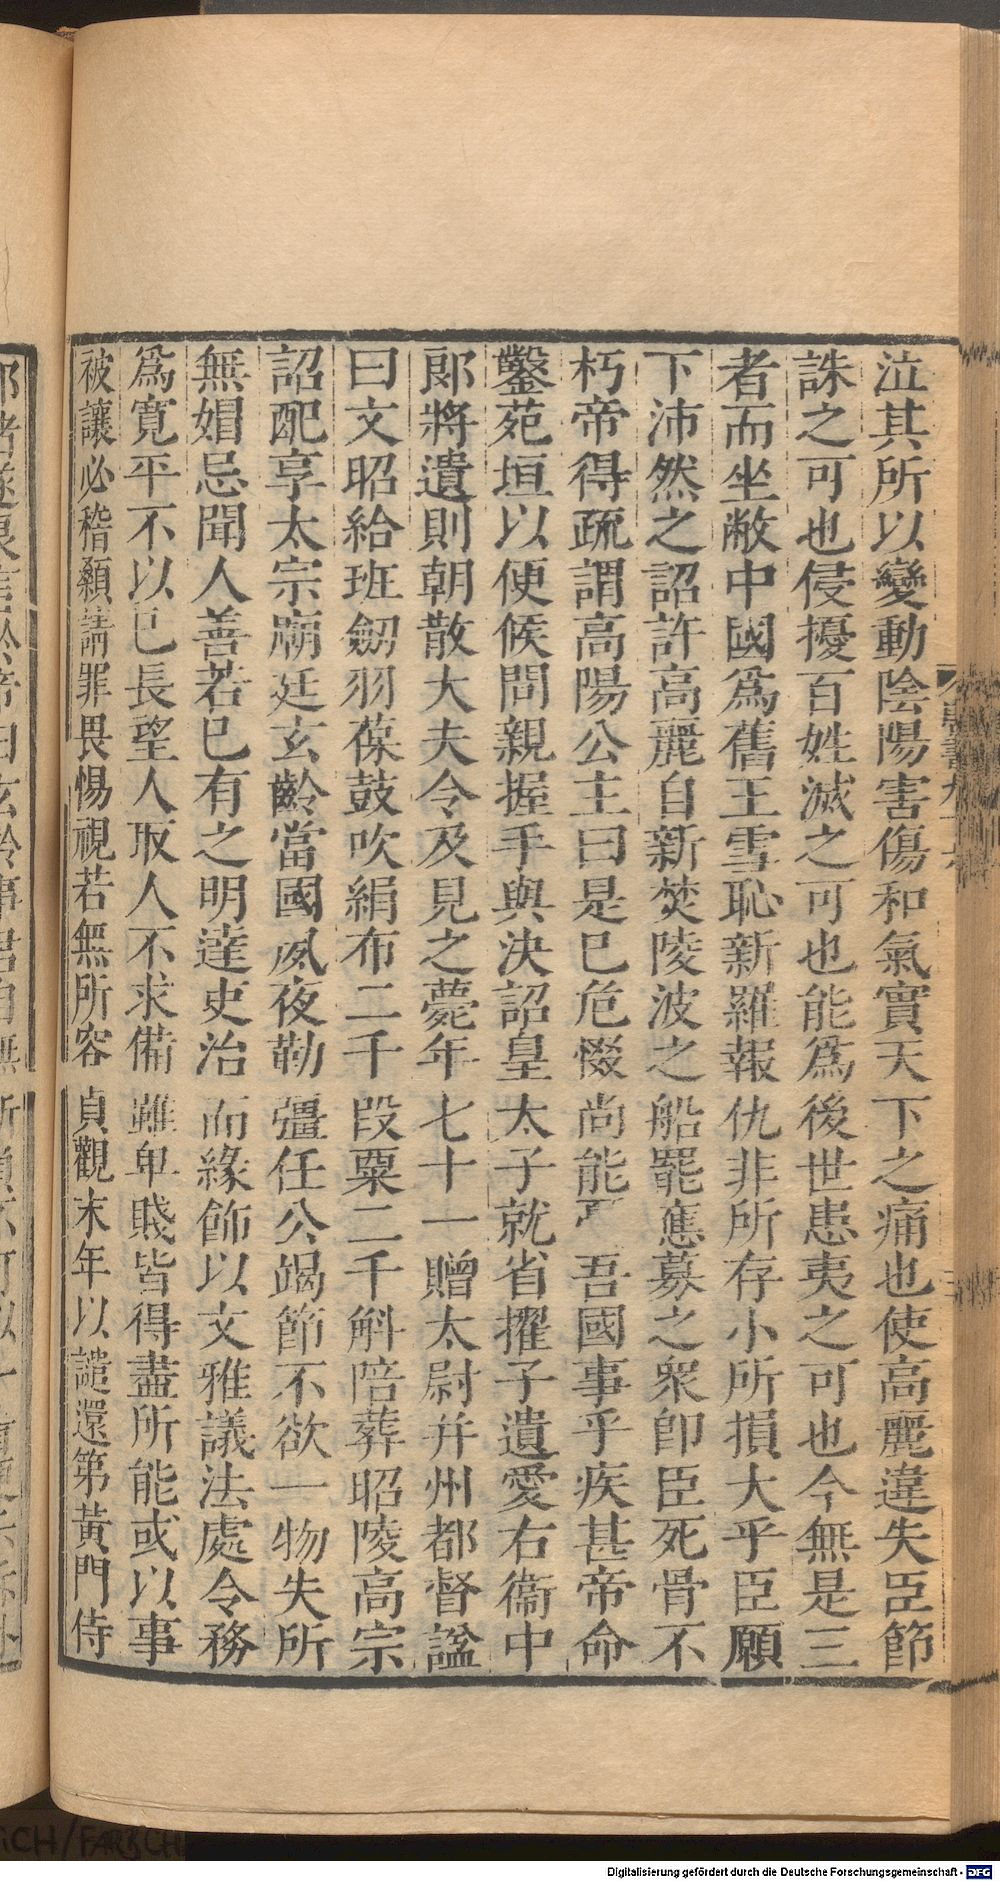 泣其所以變動陰陽害傷和氣實天下之痛也使高麗違失臣節
誅之可也侵擾百姓滅之可也能爲後世患夷之可也今無是三
者而坐敝中國爲舊王雪恥新羅報仇非所存小所損大乎臣願
下沛然之詔許高麗自新焚陵波之船罷應募之衆卽臣死骨不
朽帝得疏謂高陽公主曰是已危惙尚能 吾國事乎疾甚帝命
鑿苑垣以便候問親握手與決詔皇太子就省擢子遺愛右衞中
郎將遺則朝散大夫令及見之薨年七十一贈太尉并州都督謚
曰文昭給班劒羽葆鼓吹絹布二千段粟二千斛陪葬昭陵高宗
詔配享太宗廟廷玄齡當國夙夜勤彊任公竭節不欲一物失所
無媢忌聞人善若已有之明達吏治而緣飾以文雅議法處令務
爲寛平不以已長望人取人不求備雖卑賤皆得盡所能或以事
被讓必稽顙請罪畏惕視若無所容貞觀末年以譴還第黃門侍
Digitalisierung gefördert durch die Deutsche Forschungsgemeinschaft - DFG